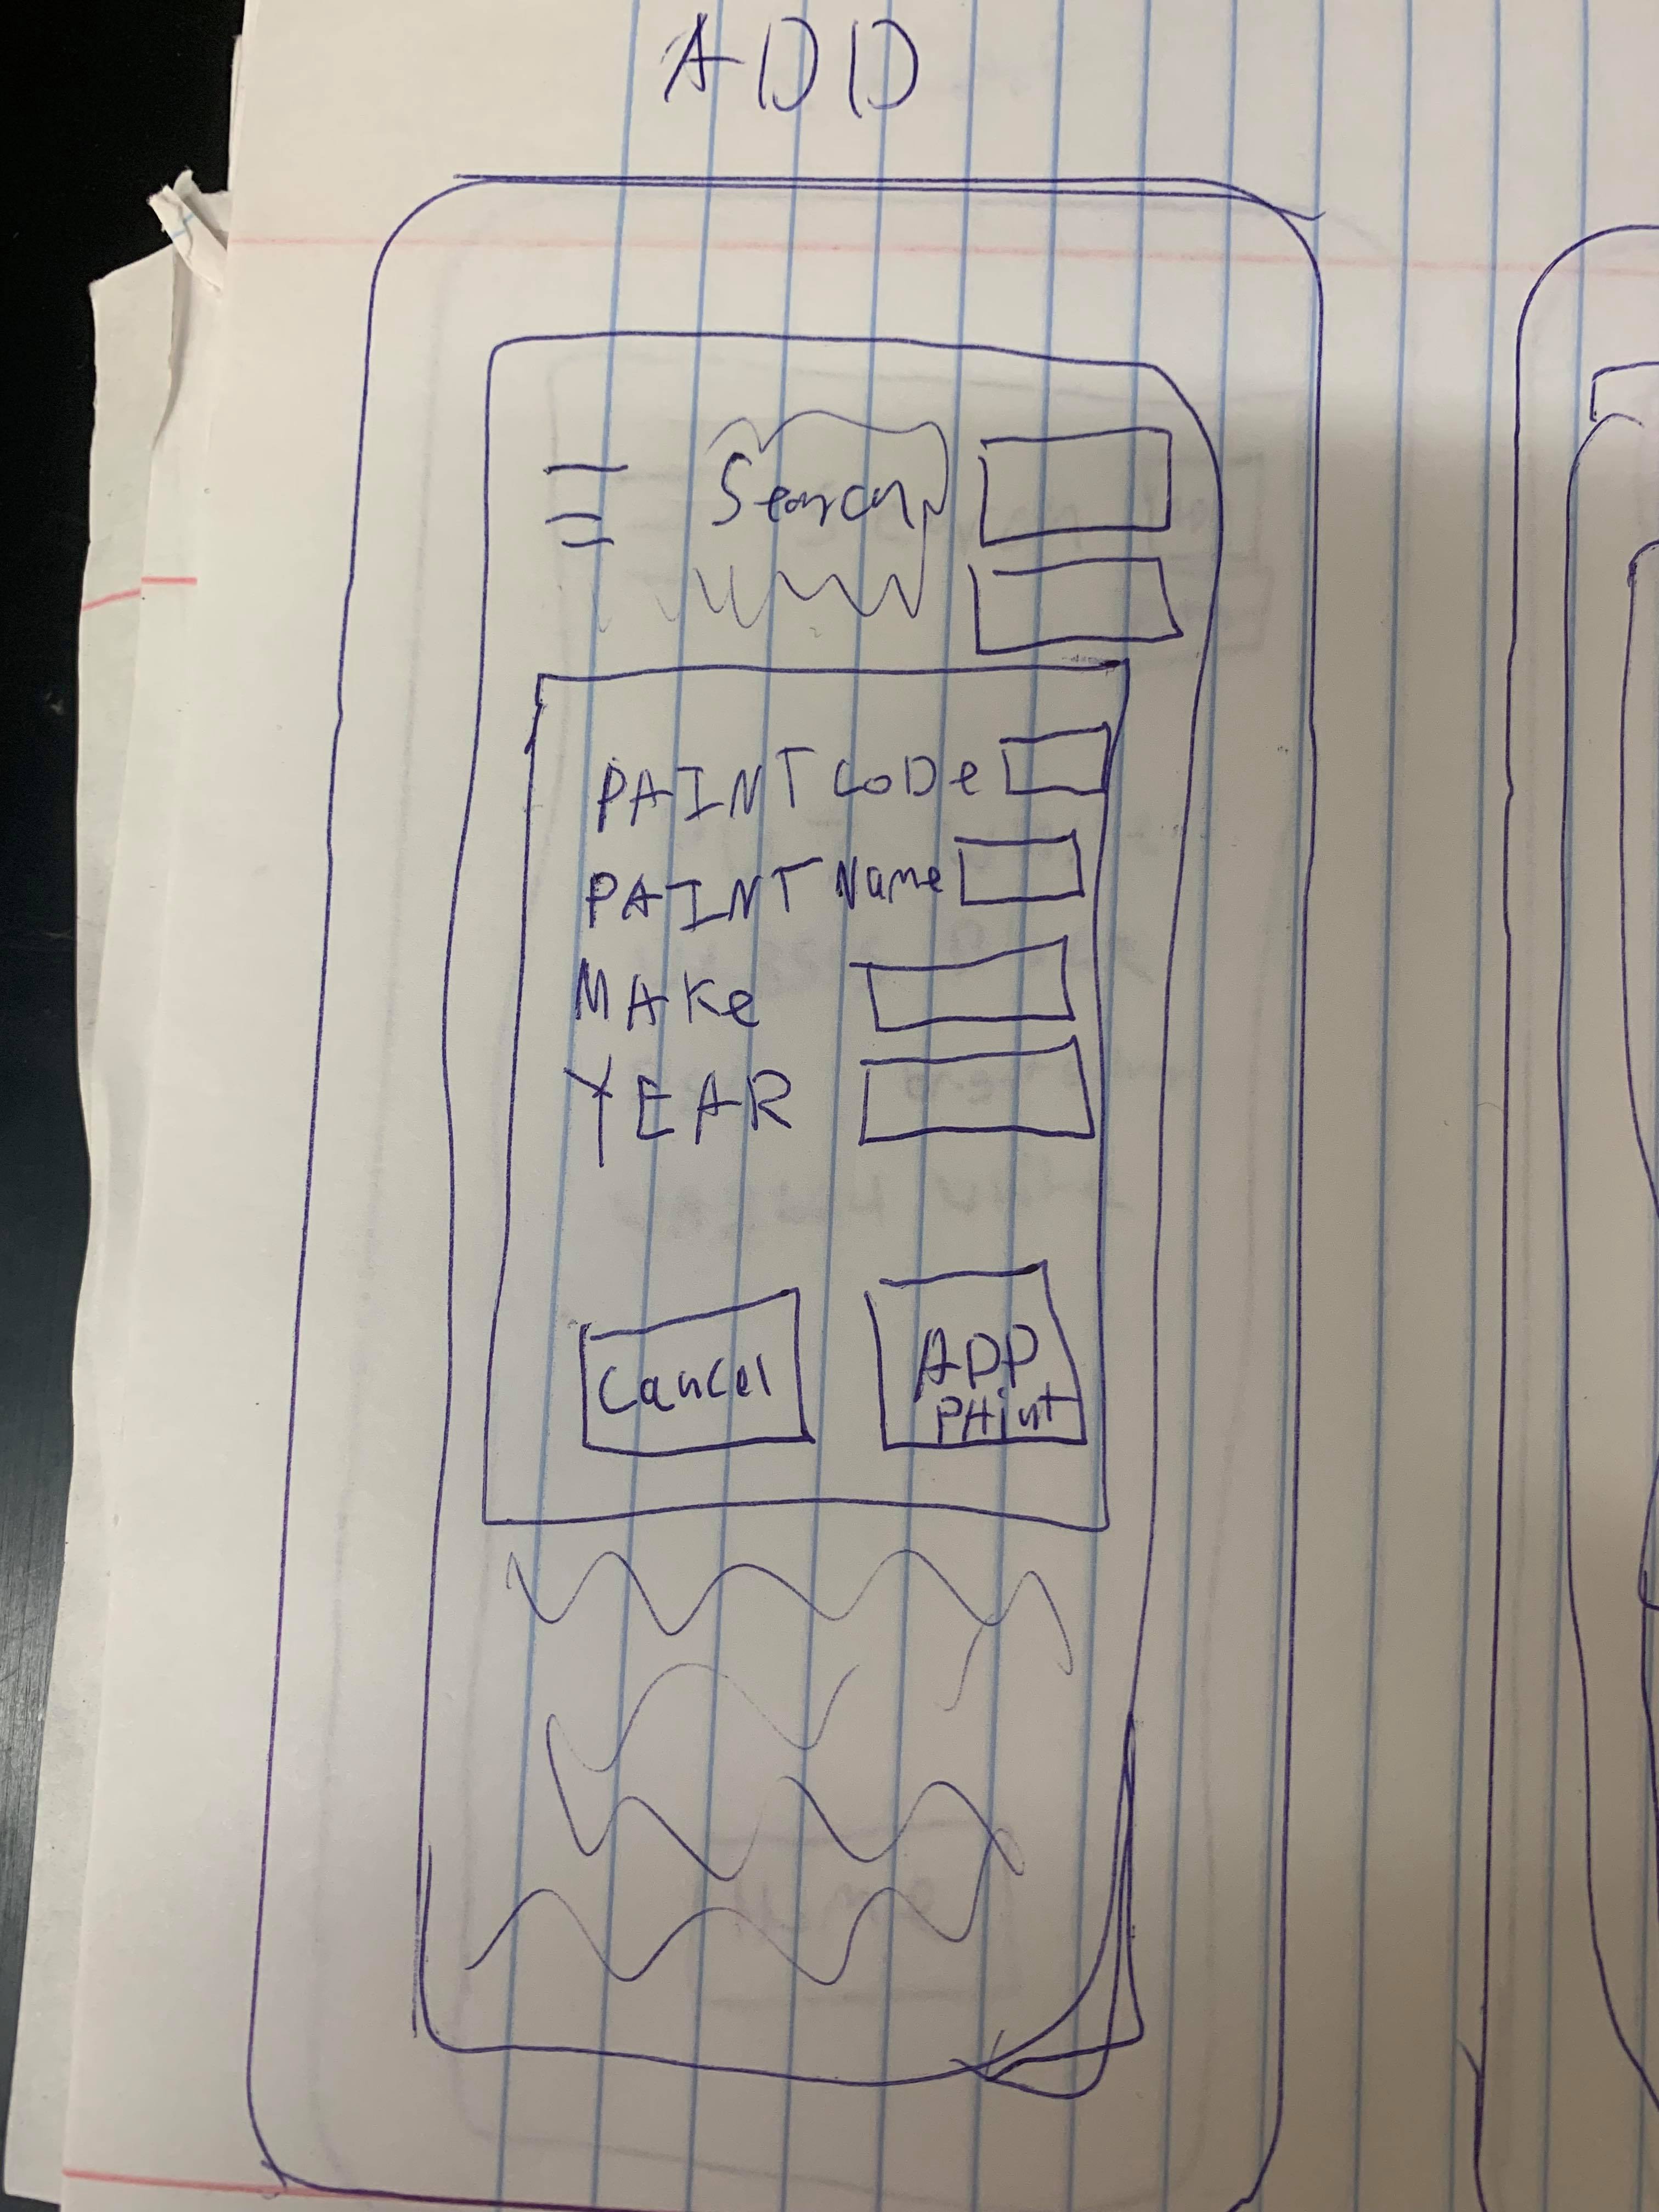 ADD
Search
PAINT CODe
PAINT Name
MAKe
YEAR
Cancel
ADD
PAint